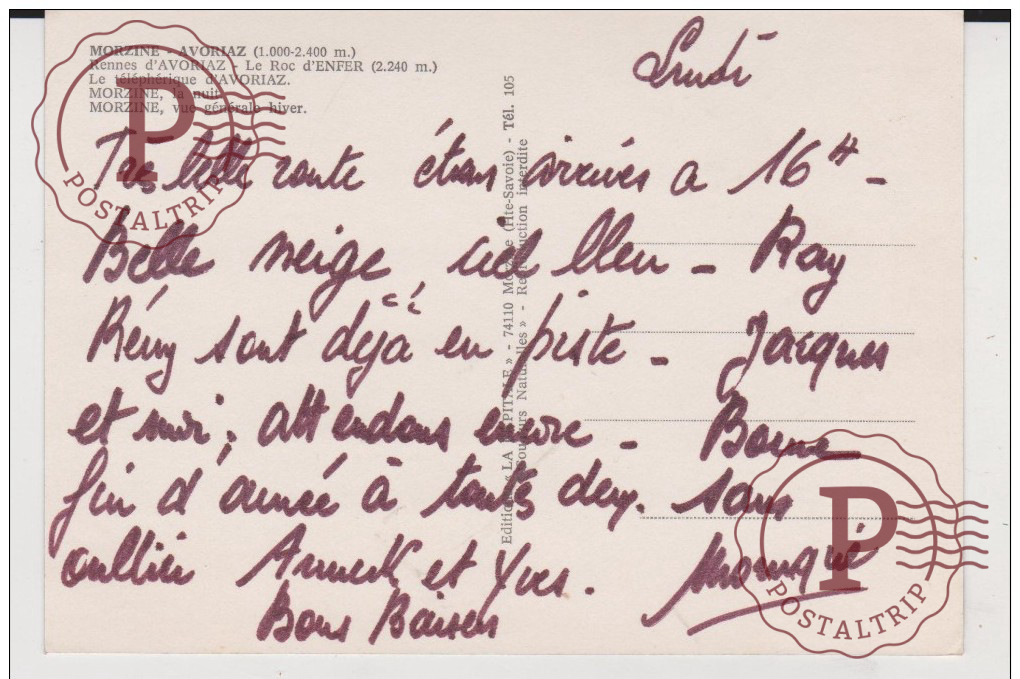 MORZINE - AVORIAZ (1.000-2.400 m.)
Rennes d'AVORIAZ - Le Roc d'ENFER (2.240 m.)
Le téléphérique d'AVORIAZ.
MORZINE, la nuit.
MORZINE, vue générale hiver.
Lundi
Tres belle route étions arrivés a 16H -
Belle neige ciel bleu - Ray
Rémy sont déjà en piste - Jacques
et moi attendons encore - Bonne
fin d'année à toutes deux. sans
oublier Annick et Yves.
Bons Baisers
Editions « LA CAPITALE » - 74110 Morzine (Hte-Savoie) - Tél. 105
« Couleurs Naturelles » - Reproduction interdite
P
POSTALTRIP
P
POSTALTRIP